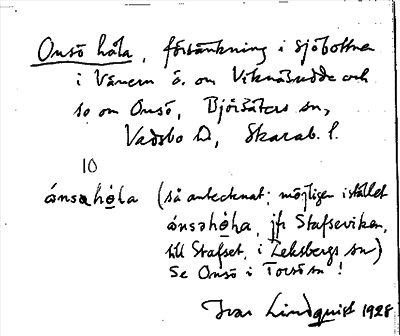 Onsö håla, försänkning i sjöbottnen
i Vänern ö. om Viknäsudde och
so om Onsö, Björsäters sn,
Vadsbo hd, Skarab. l.
10
ánsəhò̱la (så antecknat; möjligen i stället
ánsəhò̱ha, jfr Stafseviken,
till Stafset, i Leksbergs sn)
Se Onsö i Torsö sn!
Ivar Lindquist 1928